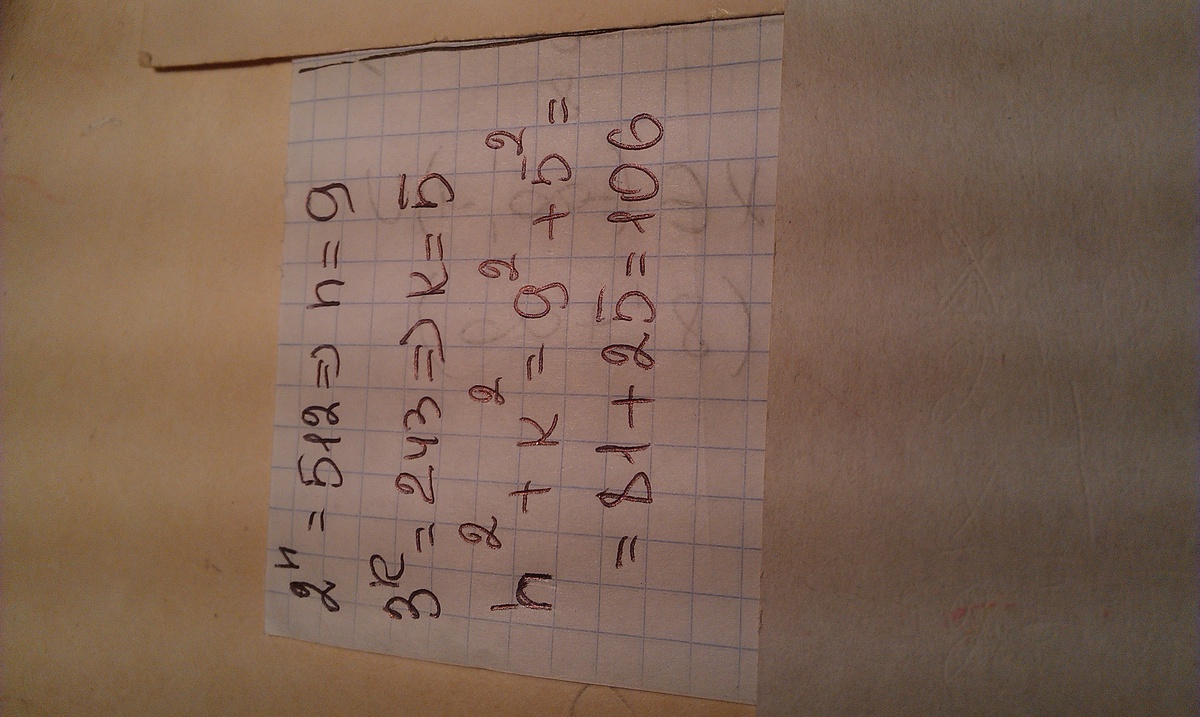 2ⁿ = 512 => n = 9
3ᵏ = 243 => k = 5
n² + k² = 9² + 5² =
= 81 + 25 = 106